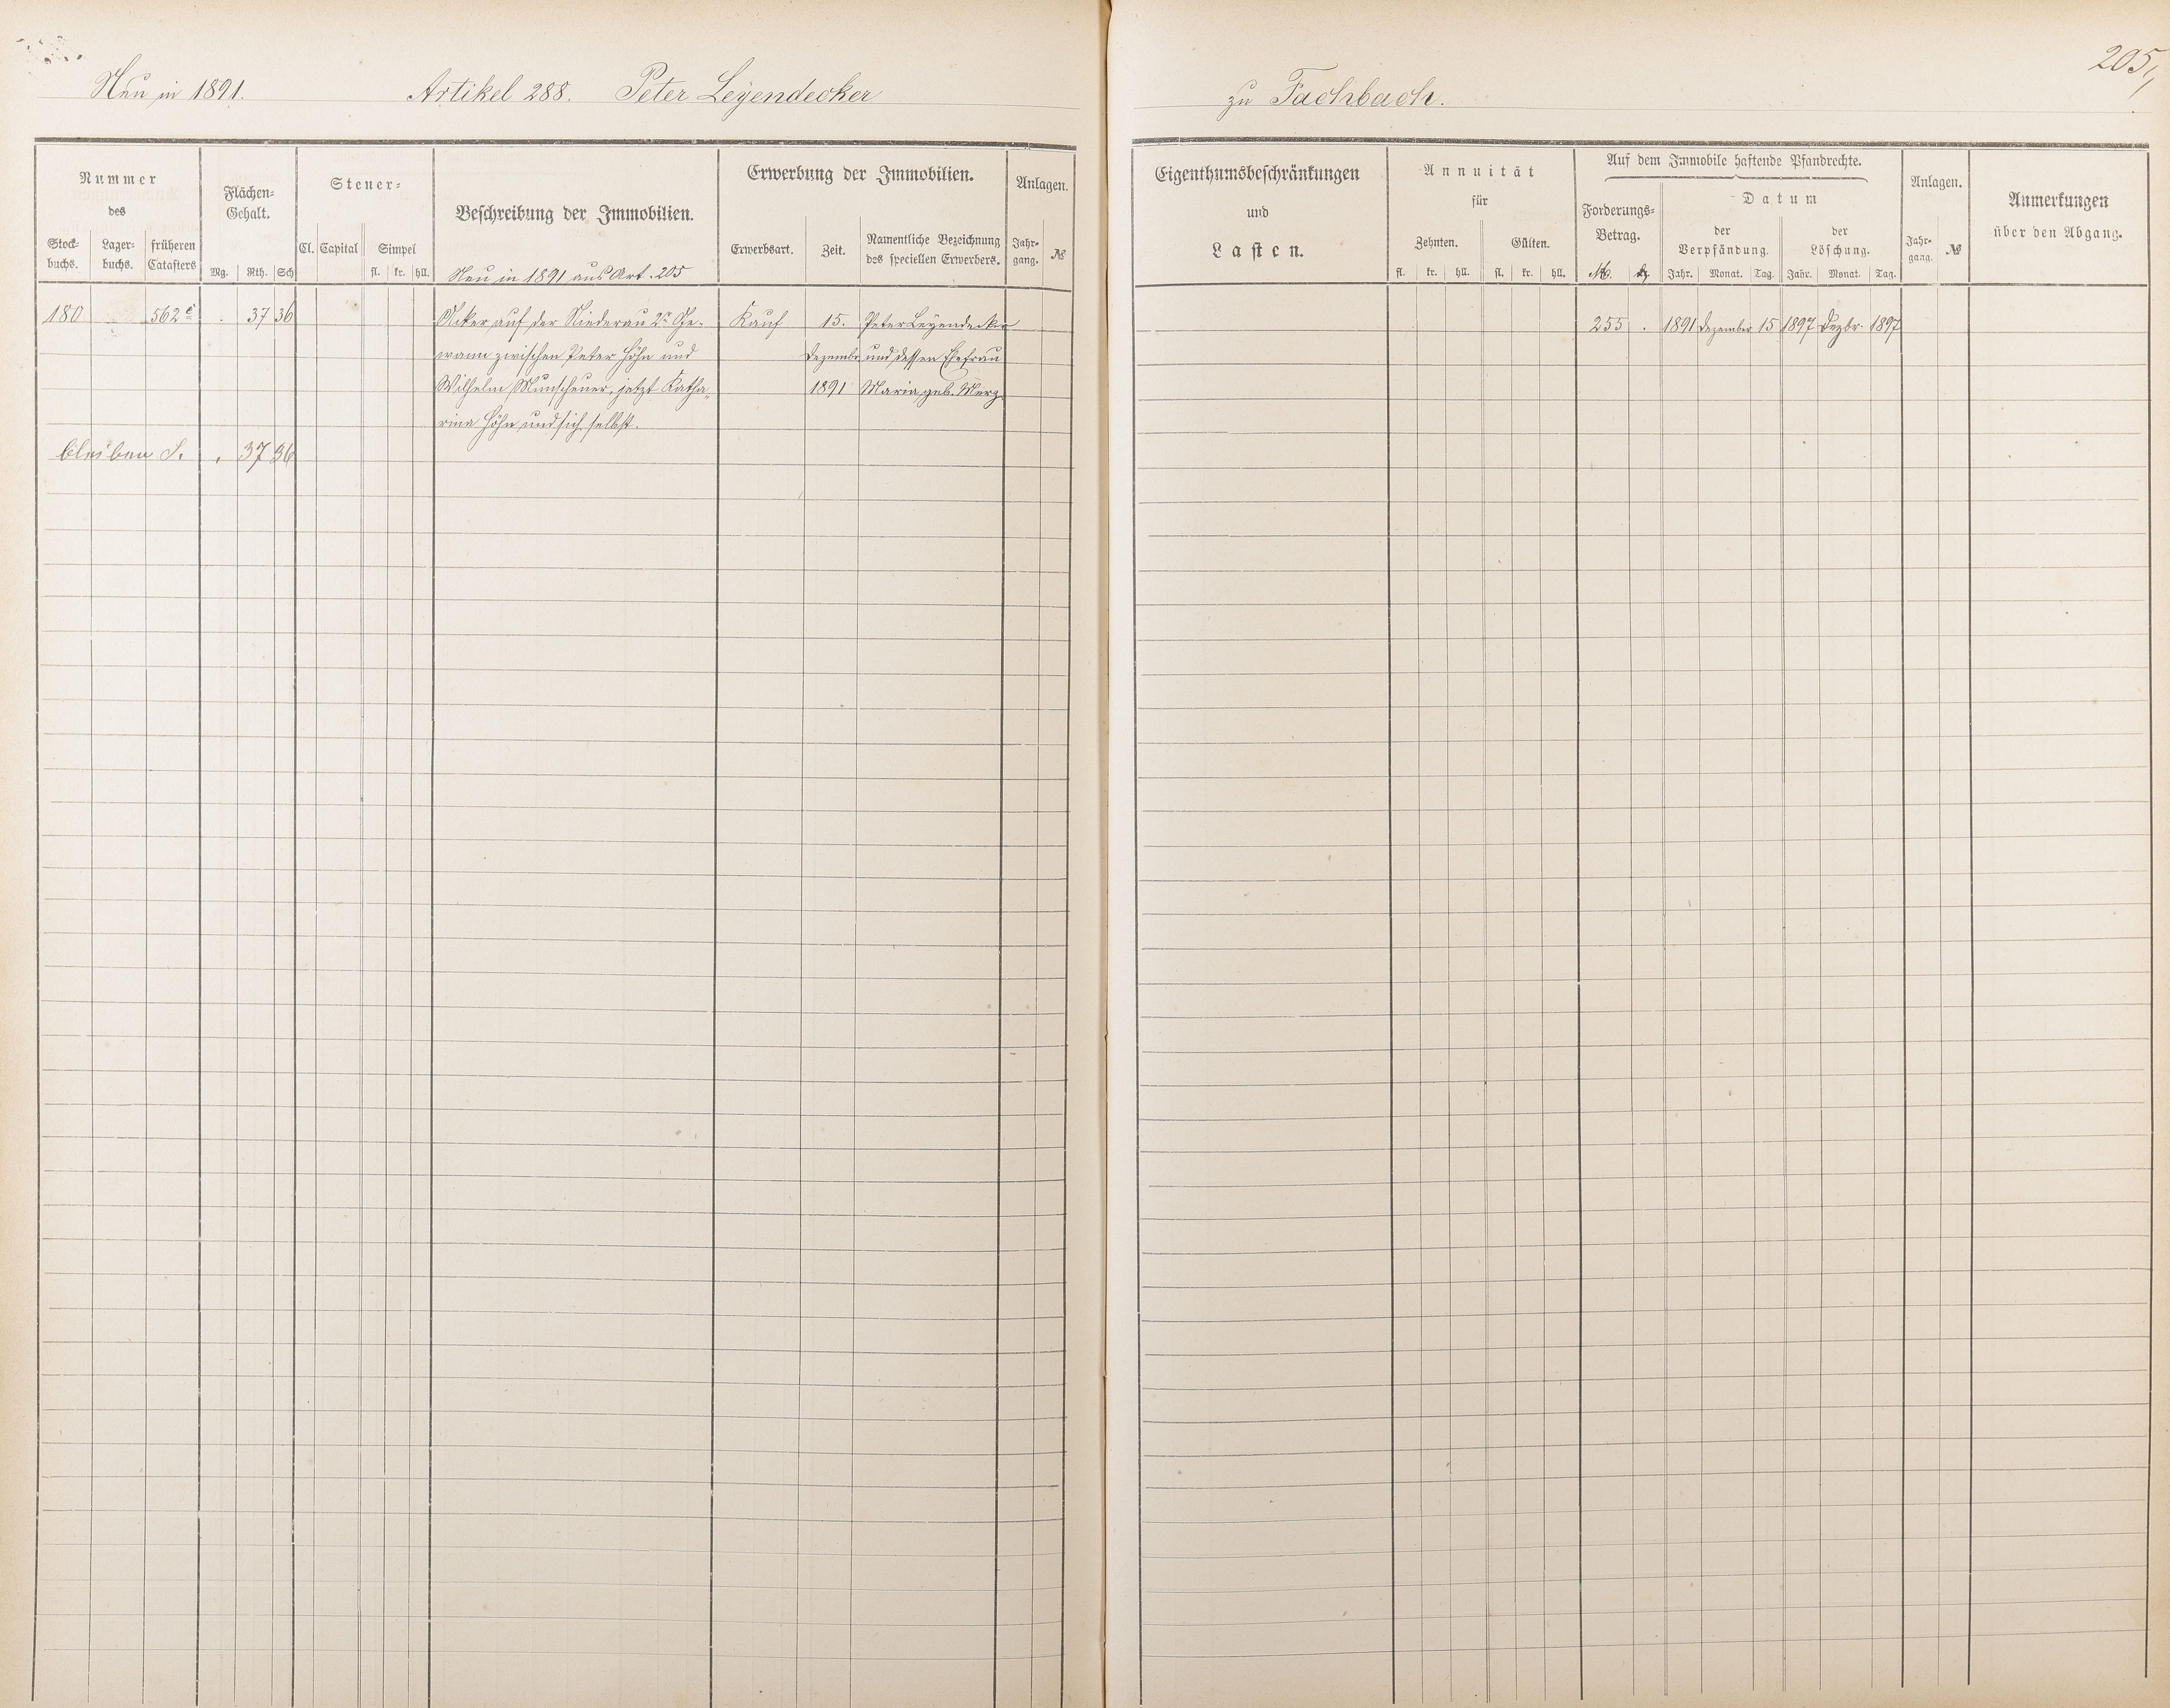 205,,
Neu in 1891. Artikel 288. Peter Leÿendecker zu Fachbach.
Nummer
des
Stock-
buchs.
Lager-
buchs.
früheren
Catasters
Flächen-
Gehalt.
Mg. Rth. Sch
Steuer-
Cl. Capital Simpel
fl. kr. hll.
Beschreibung der Immobilien.
Neu in 1891 aus Art. 205
Erwerbung der Immobilien.
Erwerbsart. Zeit.
Namentliche Bezeichnung
des speciellen Erwerbers.
Anlagen.
Jahr-
gang.
№
Eigenthumsbeschränkungen
und
Lasten.
Annuität
für
Zehnten. Gülten.
fl. kr. hll. fl. kr. hll.
Auf dem Immobile haftende Pfandrechte.
Forderungs-
Betrag.
M.
Datum
der
Verpfändung.
Jahr. Monat. Tag.
der
Löschung.
Jahr. Monat. Tag.
Anlagen.
Jahr-
gang.
№
Anmerkungen
über den Abgang.
180 562 c . 37 36 Acker auf der Niederau 2r Ge- Kauf 15. Peter Leÿendecker 255 . 1891 Dezember 15 1897 Dezbr. 1897
wann zwischen Peter Höhn und Dezembr und dessen Ehefrau
Wilhelm Munscheuer, jetzt Katha- 1891 Maria geb. Merz
rina Höhn und sich selbst.
bleiben S. . 37 36